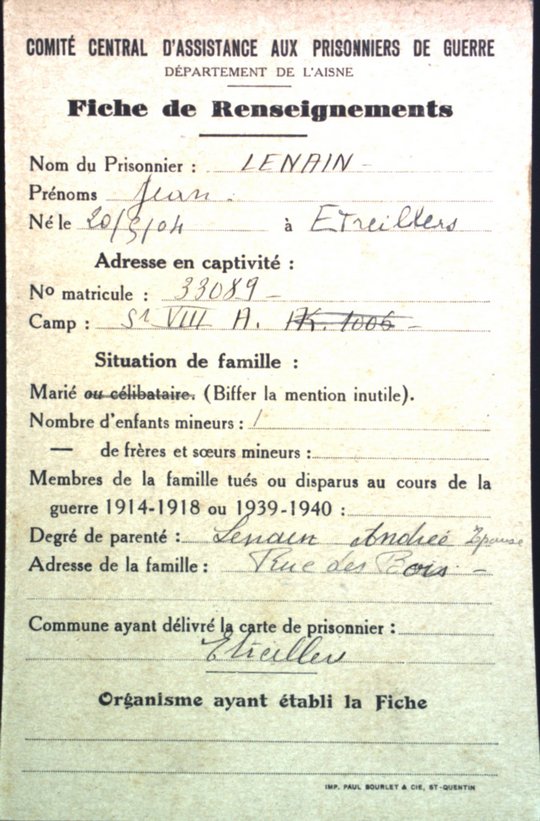 COMITÉ CENTRAL D'ASSISTANCE AUX PRISONNIERS DE GUERRE
DÉPARTEMENT DE L'AISNE
Fiche de Renseignements
Nom du Prisonnier : LENAIN
Prénoms Jean
Né le 20/3/04 à Etreillers
Adresse en captivité :
No matricule : 33089
Camp : St VIII A. AK. 1006
Situation de famille :
Marié ou célibataire. (Biffer la mention inutile).
Nombre d'enfants mineurs : 1
— de frères et sœurs mineurs :
Membres de la famille tués ou disparus au cours de la
guerre 1914-1918 ou 1939-1940 :
Degré de parenté : Lenain Andrée Epouse
Adresse de la famille : Rue des Bois
Commune ayant délivré la carte de prisonnier :
Etreillers
Organisme ayant établi la Fiche
IMP. PAUL BOURLET & CIE, ST-QUENTIN